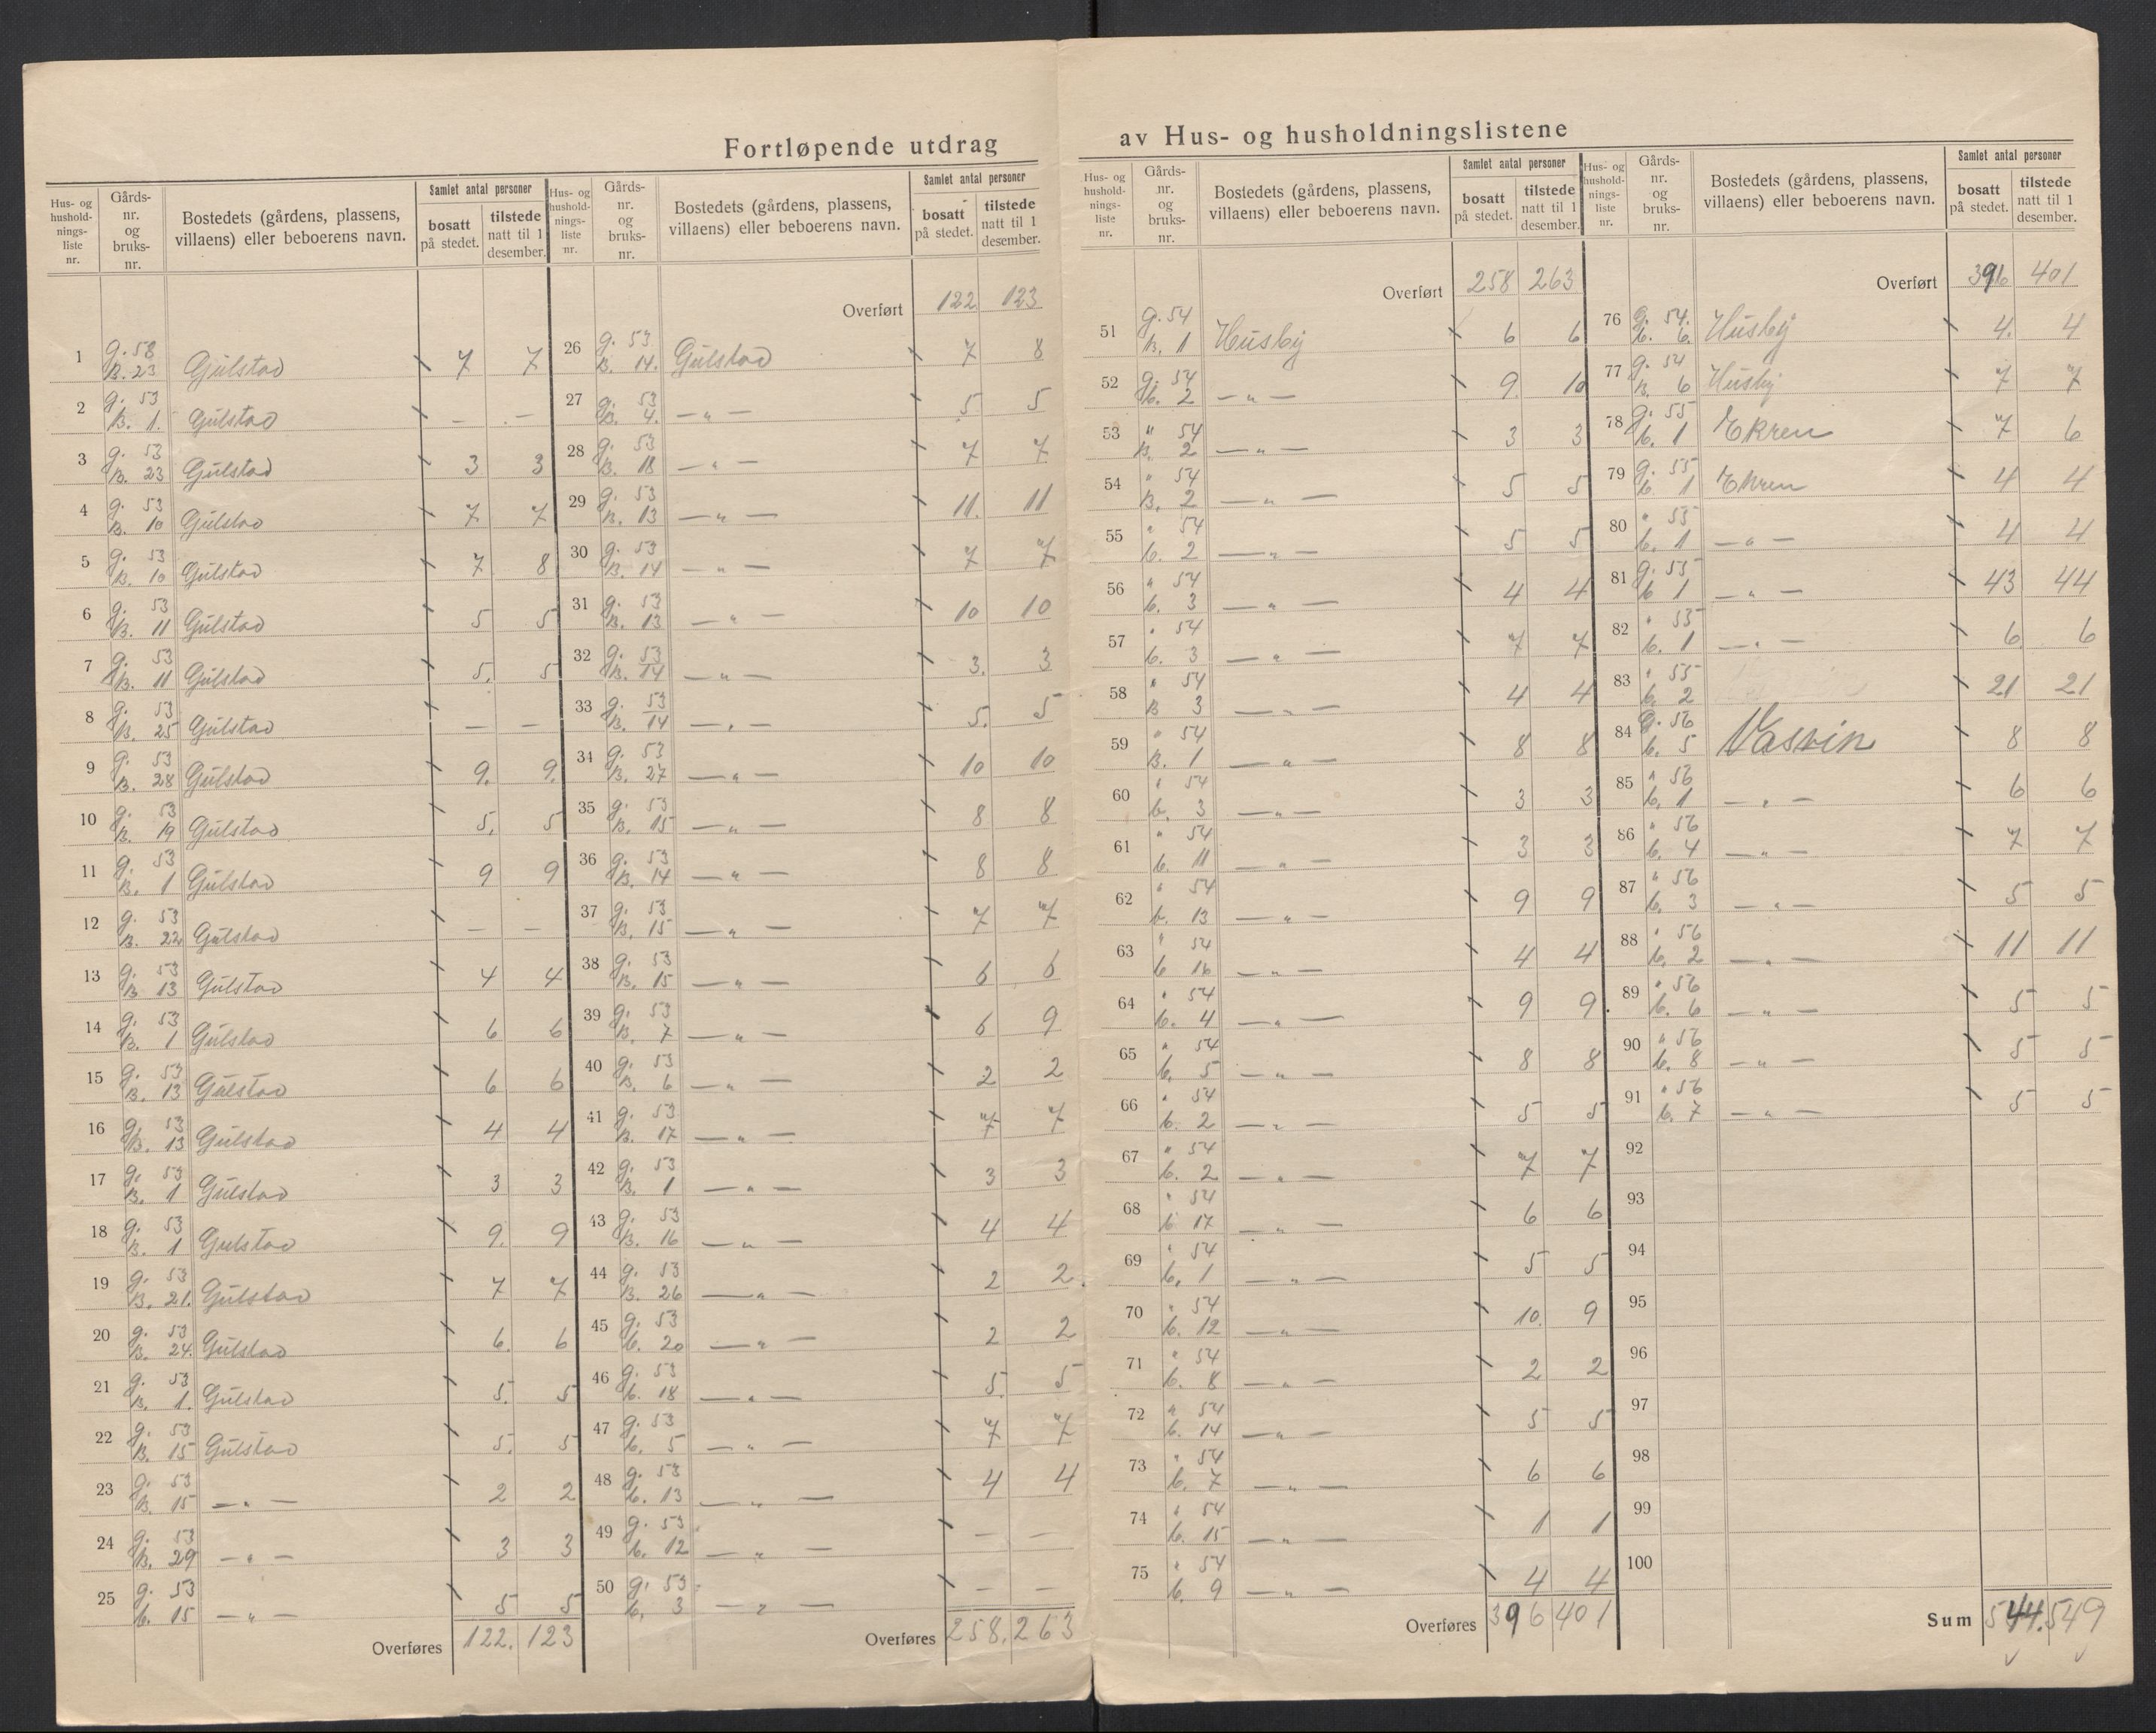 Fortløpende utdrag av Hus- og husholdningslistene
Hus- og husholdningsliste nr. | Gårds-nr. og bruks-nr. | Bostedets (gårdens, plassens, villaens) eller beboerens navn. | Samlet antal personer | bosatt på stedet. | tilstede natt til 1 desember.
1 g. 58 B. 23 Gulstad 7 7
2 g. 53 B. 1. Gulstad – –
3 g. 53 B. 23 Gulstad 3 3
4 g. 53 B. 10 Gulstad 7 7
5 g. 53 B. 10 Gulstad 7 8
6 g. 53 B. 11 Gulstad 5 5
7 g. 53 B. 11 Gulstad 5. 5
8 g. 53 B. 25 Gulstad – –
9 g. 53 B. 28 Gulstad 9. 9.
10 g. 53 B. 19 Gulstad 5. 5
11 g. 53 B. 1 Gulstad 9 9
12 g. 53 B. 22 Gulstad – –
13 g. 53 B 13 Gulstad 4 4
14 g. 53 B. 1 Gulstad 6 6
15 g. 53 B. 13 Gulstad 6 6
16 g. 53 B. 13 Gulstad 4 4
17 g. 53 B. 1 Gulstad 3 3
18 g. 53 B. 1 Gulstad 9. 9
19 g. 53 B. 21. Gulstad 7 7
20 g. 53 B. 24. Gulstad 6. 6
21 g. 53 B. 1. Gulstad 5. 5
22 g. 53 B. 15 Gulstad 5. 5
23 g. 53 B. 15 — " — 2 2
24 g. 53 B. 29 — " — 3 3
25 g. 53 b. 15 — " — 5 5
Overføres 122. 123
Hus- og husholdningsliste nr. | Gårds-nr. og bruks-nr. | Bostedets (gårdens, plassens, villaens) eller beboerens navn. | Samlet antal personer | bosatt på stedet. | tilstede natt til 1 desember.
Overført 122 123
26 g. 53 B. 14. Gulstad 7 8
27 g. 53 B. 4. — " — 5 5
28 g. 53 B. 18 — " — 7 7
29 g. 53 B. 13 — " — 11. 11
30 g. 53 B. 14 — " — 7 7
31 g. 53 B. 13 — " — 10 10
32 g. 53 B. 14 — " — 3. 3
33 g. 53 B. 14 — " — 5. 5
34 g. 53 B. 27 — " — 10 10
35 g. 53 B. 15 — " — 8 8
36 g. 53 B. 14 — " — 8 8
37 g. 53 B. 15 — " — 7 7
38 g. 53 B. 15 — " — 6 6
39 g. 53 B. 7 — " — 6 9
40 g. 53 B. 6 — " — 2 2
41 g. 53 B. 17 — " — 7 7
42 g. 53 B. 1 — " — 3 3
43 g. 53 B. 16 — " — 4 4
44 g. 53 B. 26 — " — 2 2.
45 g. 53 b. 20 — " — 2 2
46 g. 53 b. 18 — " — 5. 5
47 g. 53 b. 5 — " — 7 7
48 g. 53 b. 13 — " — 4 4
49 g. 53 b. 12 — " — – –
50 g. 53 b. 3 — " — – –
Overføres 258. 263
Hus- og husholdningsliste nr. | Gårds-nr. og bruks-nr. | Bostedets (gårdens, plassens, villaens) eller beboerens navn. | Samlet antal personer | bosatt på stedet. | tilstede natt til 1 desember.
Overført 258 263
51 g. 54 B. 1 Husby 6 6
52 g. 54 b. 2 — " — 9. 10
53 " 54 B. 2 — " — 3 3
54 " 54 B. 2 — " — 5 5
55 " 54 b. 2 — " — 5 5
56 " 54 b. 3 — " — 4 4
57 " 54 b. 3 — " — 7 7
58 " 54 B 3 — " — 4 4
59 " 54 B. 1 — " — 8 8
60 " 54 b. 3 — " — 3 3
61 " 54 b. 11 — " — 3 3
62 " 54 b. 13 — " — 9 9
63 " 54 b 16 — " — 4 4
64 " 54 b. 4 — " — 9 9.
65 " 54 b. 5 — " — 8 8
66 " 54 b. 2 — " — 5 5
67 " 54 b. 2 — " — 7 7
68 " 54 b 17 — " — 6 6
69 " 54 b. 1 — " — 5 5
70 " 54 b. 12 — " — 10. 9
71 " 54 b. 8 — " — 2 2
72 " 54 b. 14 — " — 5 5
73 " 54 b. 7 — " — 6 6
74 " 54 b. 15 — " — 1 1
75 " 54 b. 9 — " — 4 4
Overføres 396 401
Hus- og husholdningsliste nr. | Gårds-nr. og bruks-nr. | Bostedets (gårdens, plassens, villaens) eller beboerens navn. | Samlet antal personer | bosatt på stedet. | tilstede natt til 1 desember.
Overført 396 401
76 g. 54. b. 6. Husby 4. 4
77 g. 54 B. 6 Husby 7 7
78 g. 55 b. 1 Ekren 7 6
79 g. 55 b. 1 Ekren 4 4
80 " 55 b. 1 — " — 4 4
81 g. 55 b 1 — " — 43 44
82 " 55 b. 1 — " — 6 6
83 " 55 b. 2 21 21
84 g. 56 b. 5 8 8
85 " 56 b. 1 — " — 6 6
86 " 56 b. 4 — " — 7 7
87 " 56 b. 3 — " — 5 5
88 " 56 b. 2 — " — 11 11
89 " 56 b. 6 — " — 5 5
90 " 56 b. 8 — " — 5 5
91 " 56 b. 7 — " — 5 5
92
93
94
95
96
97
98
99
100
Sum 544. 549